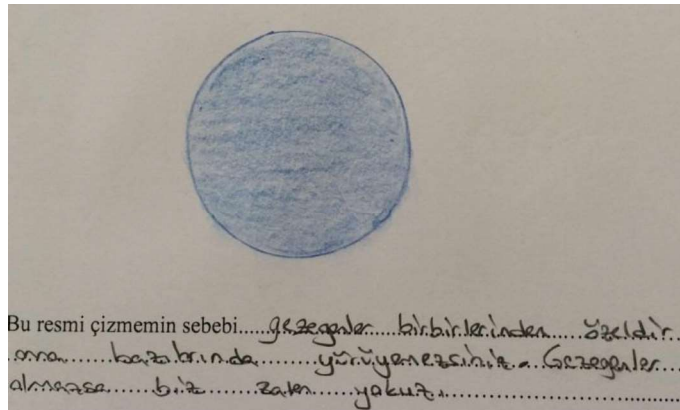 Bu resmi çizmemin sebebi.....gezegenler....birbirlerinden....özeldir..
ama......bazılarında........yürüyemezsiniz..Gezegenler...
olmazsa.....biz......zaten....yokuz.